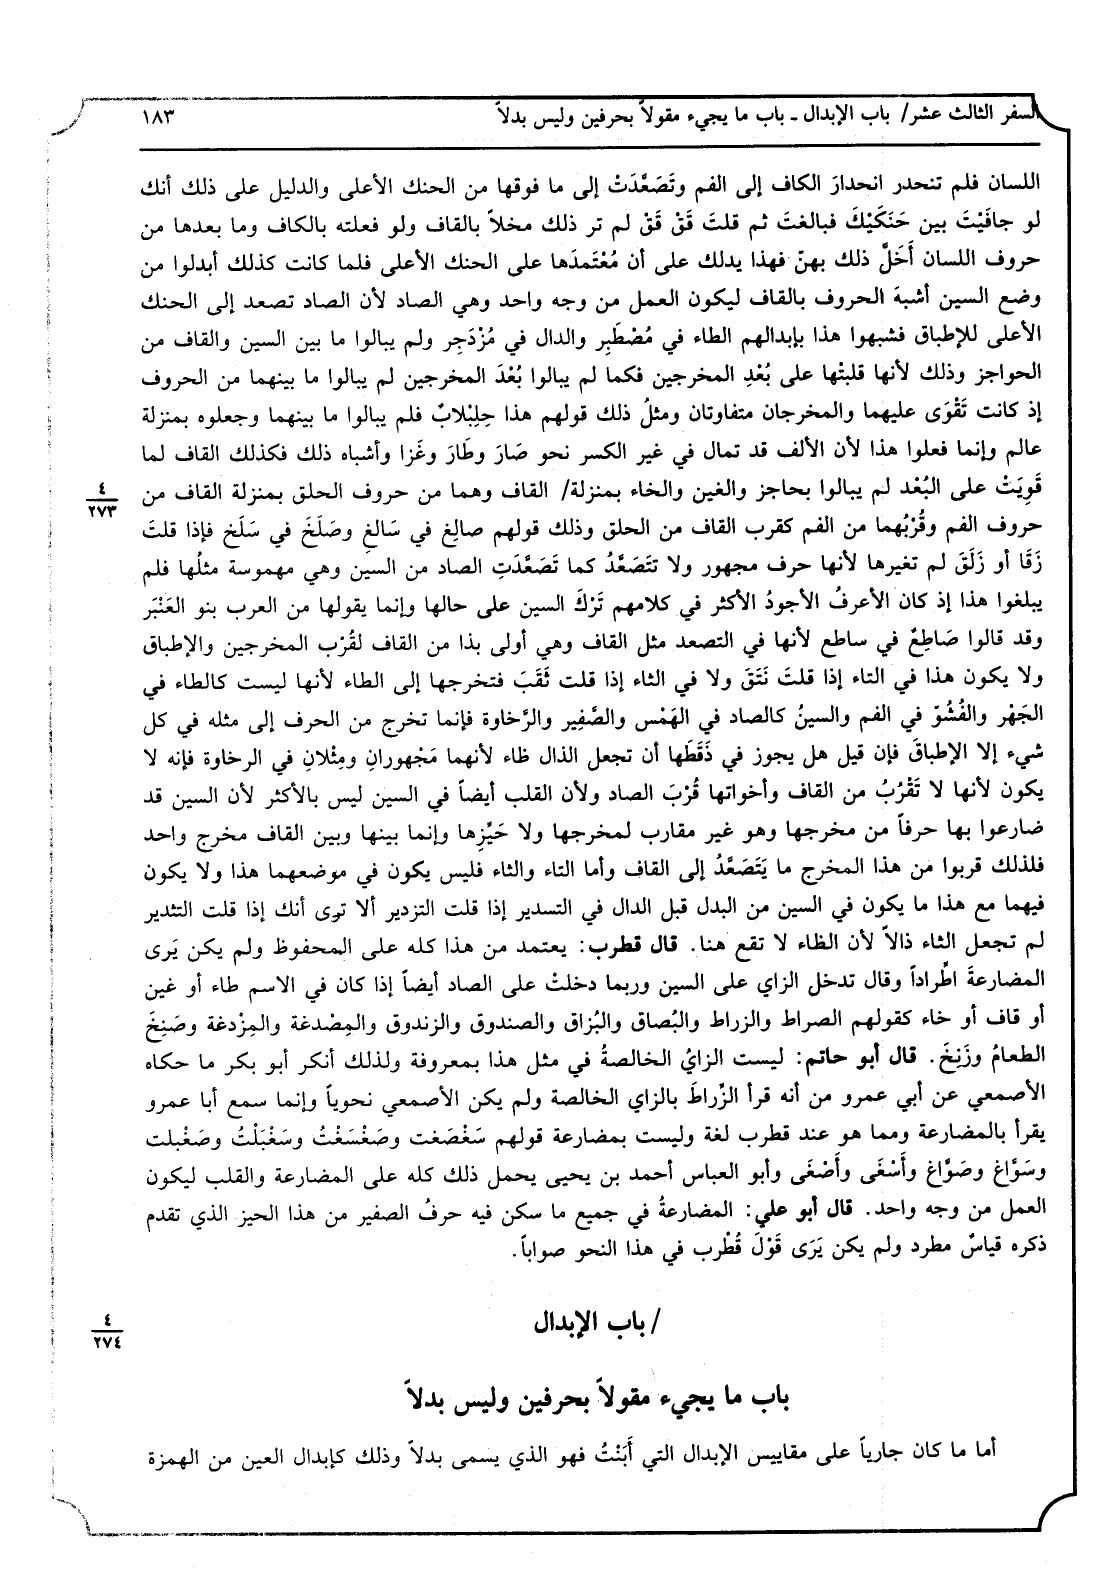 السفر الثالث عشر/ باب الإبدال ـ باب ما يجيء مقولاً بحرفين وليس بدلاً ١٨٣
اللسان فلم تنحدر انحدارَ الكاف إلى الفم وتَصَعَّدَتْ إلى ما فوقها من الحنك الأعلى والدليل على ذلك أنك
لو جافَيْتَ بين حَنَكَيْكَ فبالغتَ ثم قلتَ قَقْ قَقْ لم تر ذلك مخلاً بالقاف ولو فعلته بالكاف وما بعدها من
حروف اللسان أَخَلَّ ذلك بهنّ فهذا يدلك على أن مُعْتَمدَها على الحنك الأعلى فلما كانت كذلك أبدلوا من
وضع السين أشبهَ الحروف بالقاف ليكون العمل من وجه واحد وهي الصاد لأن الصاد تصعد إلى الحنك
الأعلى للإطباق فشبهوا هذا بإبدالهم الطاء في مُصْطَبِر والدال في مُزْدَجِر ولم يبالوا ما بين السين والقاف من
الحواجز وذلك لأنها قلبتْها على بُعْدِ المخرجين فكما لم يبالوا بُعْدَ المخرجين لم يبالوا ما بينهما من الحروف
إذ كانت تَقْوَى عليهما والمخرجان متفاوتان ومثلُ ذلك قولهم هذا حِلِبْلابٌ فلم يبالوا ما بينهما وجعلوه بمنزلة
عالم وإنما فعلوا هذا لأن الألف قد تمال في غير الكسر نحو صَارَ وطَارَ وغَزا وأشباه ذلك فكذلك القاف لما
قَوِيَتْ على البُعْد لم يبالوا بحاجز والغين والخاء بمنزلة/ القاف وهما من حروف الحلق بمنزلة القاف من
٤
٢٧٣
حروف الفم وقُرْبُهما من الفم كقرب القاف من الحلق وذلك قولهم صالِغ في سَالغِ وصَلَخَ في سَلَخ فإذا قلتَ
زَقَا أو زَلَقَ لم تغيرها لأنها حرف مجهور ولا تتَصَعَّدُ كما تَصَعَّدَتِ الصاد من السين وهي مهموسة مثلُها فلم
يبلغوا هذا إذ كان الأعرفُ الأجودُ الأكثر في كلامهم تَرْكَ السين على حالها وإنما يقولها من العرب بنو العَنْبَر
وقد قالوا صَاطِعٌ في ساطع لأنها في التصعد مثل القاف وهي أولى بذا من القاف لقُرْب المخرجين والإطباق
ولا يكون هذا في التاء إذا قلتَ نَتَقَ ولا في الثاء إذا قلت ثَقَبَ فتخرجها إلى الطاء لأنها ليست كالطاء في
الجَهْر والفُشُوّ في الفم والسينُ كالصاد في الهَمْس والصَّفِير والرَّخاوة فإنما تخرج من الحرف إلى مثله في كل
شيء إلا الإطباقَ فإن قيل هل يجوز في ذَقَطَها أن تجعل الذال ظاء لأنهما مَجْهورانِ ومِثْلانِ في الرخاوة فإنه لا
يكون لأنها لا تَقْرُبُ من القاف وأخواتها قُرْبَ الصاد ولأن القلب أيضاً في السين ليس بالأكثر لأن السين قد
ضارعوا بها حرفاً من مخرجها وهو غير مقارب لمخرجها ولا حَيِّزِها وإنما بينها وبين القاف مخرج واحد
فلذلك قربوا من هذا المخرج ما يَتَصَعَّدُ إلى القاف وأما التاء والثاء فليس يكون في موضعهما هذا ولا يكون
فيهما مع هذا ما يكون في السين من البدل قبل الدال في التسدير إذا قلت التزدير ألا ترى أنك إذا قلت التثدير
لم تجعل الثاء ذالاً لأن الظاء لا تقع هنا. قال قطرب: يعتمد من هذا كله على المحفوظ ولم يكن يَرى
المضارعةَ اطِّراداً وقال تدخل الزاي على السين وربما دخلتْ على الصاد أيضاً إذا كان في الاسم طاء أو غين
أو قاف أو خاء كقولهم الصراط والزراط والبُصاق والبُزاق والصندوق والزندوق والمِصْدغة والمِزْدغة وصَنِخَ
الطعامُ وزَنِخَ. قال أبو حاتم: ليست الزايُ الخالصةُ في مثل هذا بمعروفة ولذلك أنكر أبو بكر ما حكاه
الأصمعي عن أبي عمرو من أنه قرأ الزِّراطَ بالزاي الخالصة ولم يكن الأصمعي نحوياً وإنما سمع أبا عمرو
يقرأ بالمضارعة ومما هو عند قطرب لغة وليست بمضارعة قولهم سَغْصَغت وصَغْسَغْتُ وسَغْبَلْتُ وصَغْبلت
وسَوَّاغ وصَوَّاغ وأَسْغَى وأَصْغَى وأبو العباس أحمد بن يحيى يحمل ذلك كله على المضارعة والقلب ليكون
العمل من وجه واحد. قال أبو علي: المضارعةُ في جميع ما سكن فيه حرفُ الصفير من هذا الحيز الذي تقدم
ذكره قياسٌ مطرد ولم يكن يَرَى قَوْلَ قُطْرب في هذا النحو صواباً.
/ باب الإبدال
٤
٢٧٤
باب ما يجيء مقولاً بحرفين وليس بدلاً
أما ما كان جارياً على مقاييس الإبدال التي أَبَنْتُ فهو الذي يسمى بدلاً وذلك كإبدال العين من الهمزة